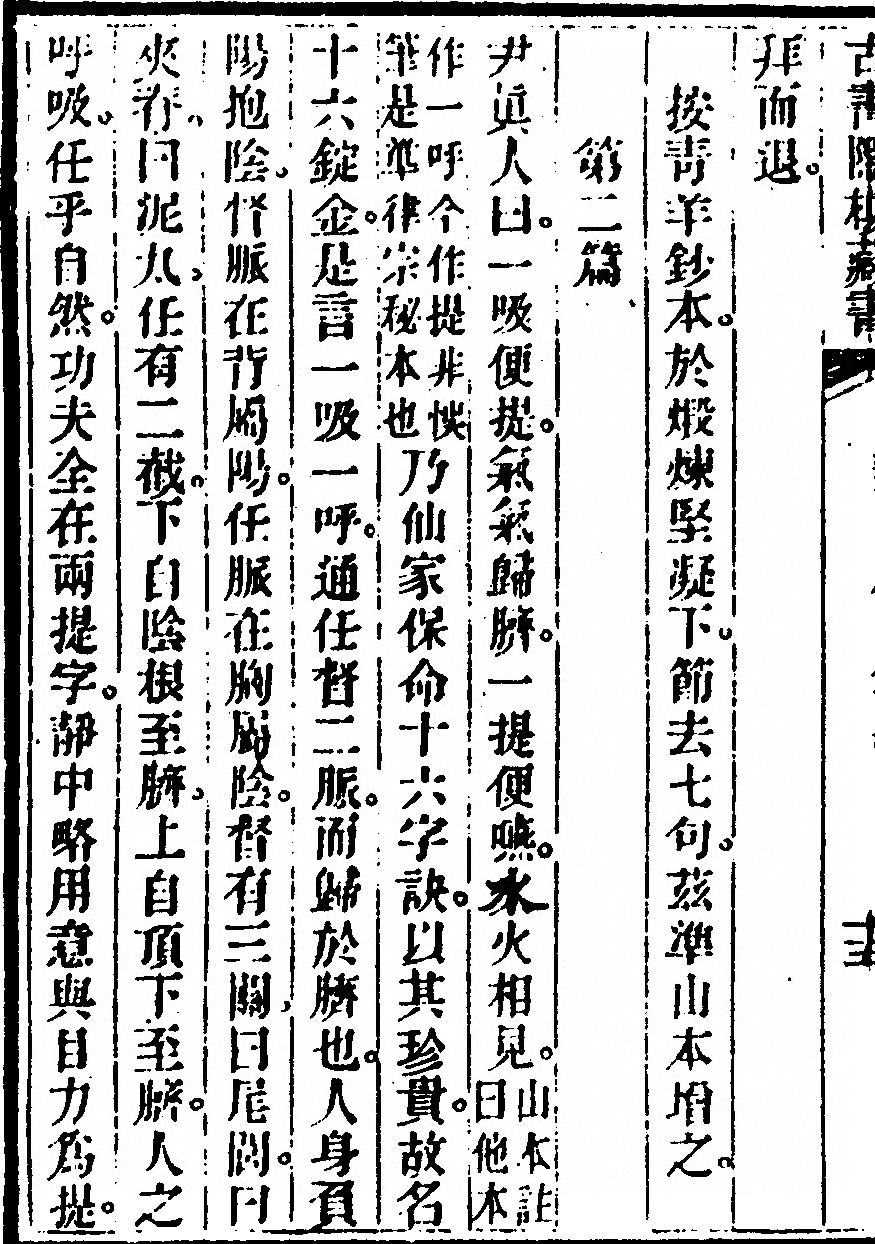 古書隱樓藏書
十三
拜而退。
按靑羊鈔本。於煅煉堅凝下。節去七句。茲準山本增之。
第二篇
尹眞人曰。一吸便提。氣氣歸臍。一提便嚥。水火相見。山本註曰他本
作一呼今作提非悞筆是準律宗秘本也乃仙家保命十六字訣。以其珍貴。故名
十六錠金。是言一吸一呼。通任督二脈。而歸於臍也。人身負
陽抱陰。督脈在背屬陽。任脈在胸屬陰。督有三關曰尾閭。曰
夾脊。曰泥丸。任有二截。下自陰根至臍。上自頂下至臍。人之
呼吸。任乎自然。功夫全在兩提字。靜中略用意與目力爲提。